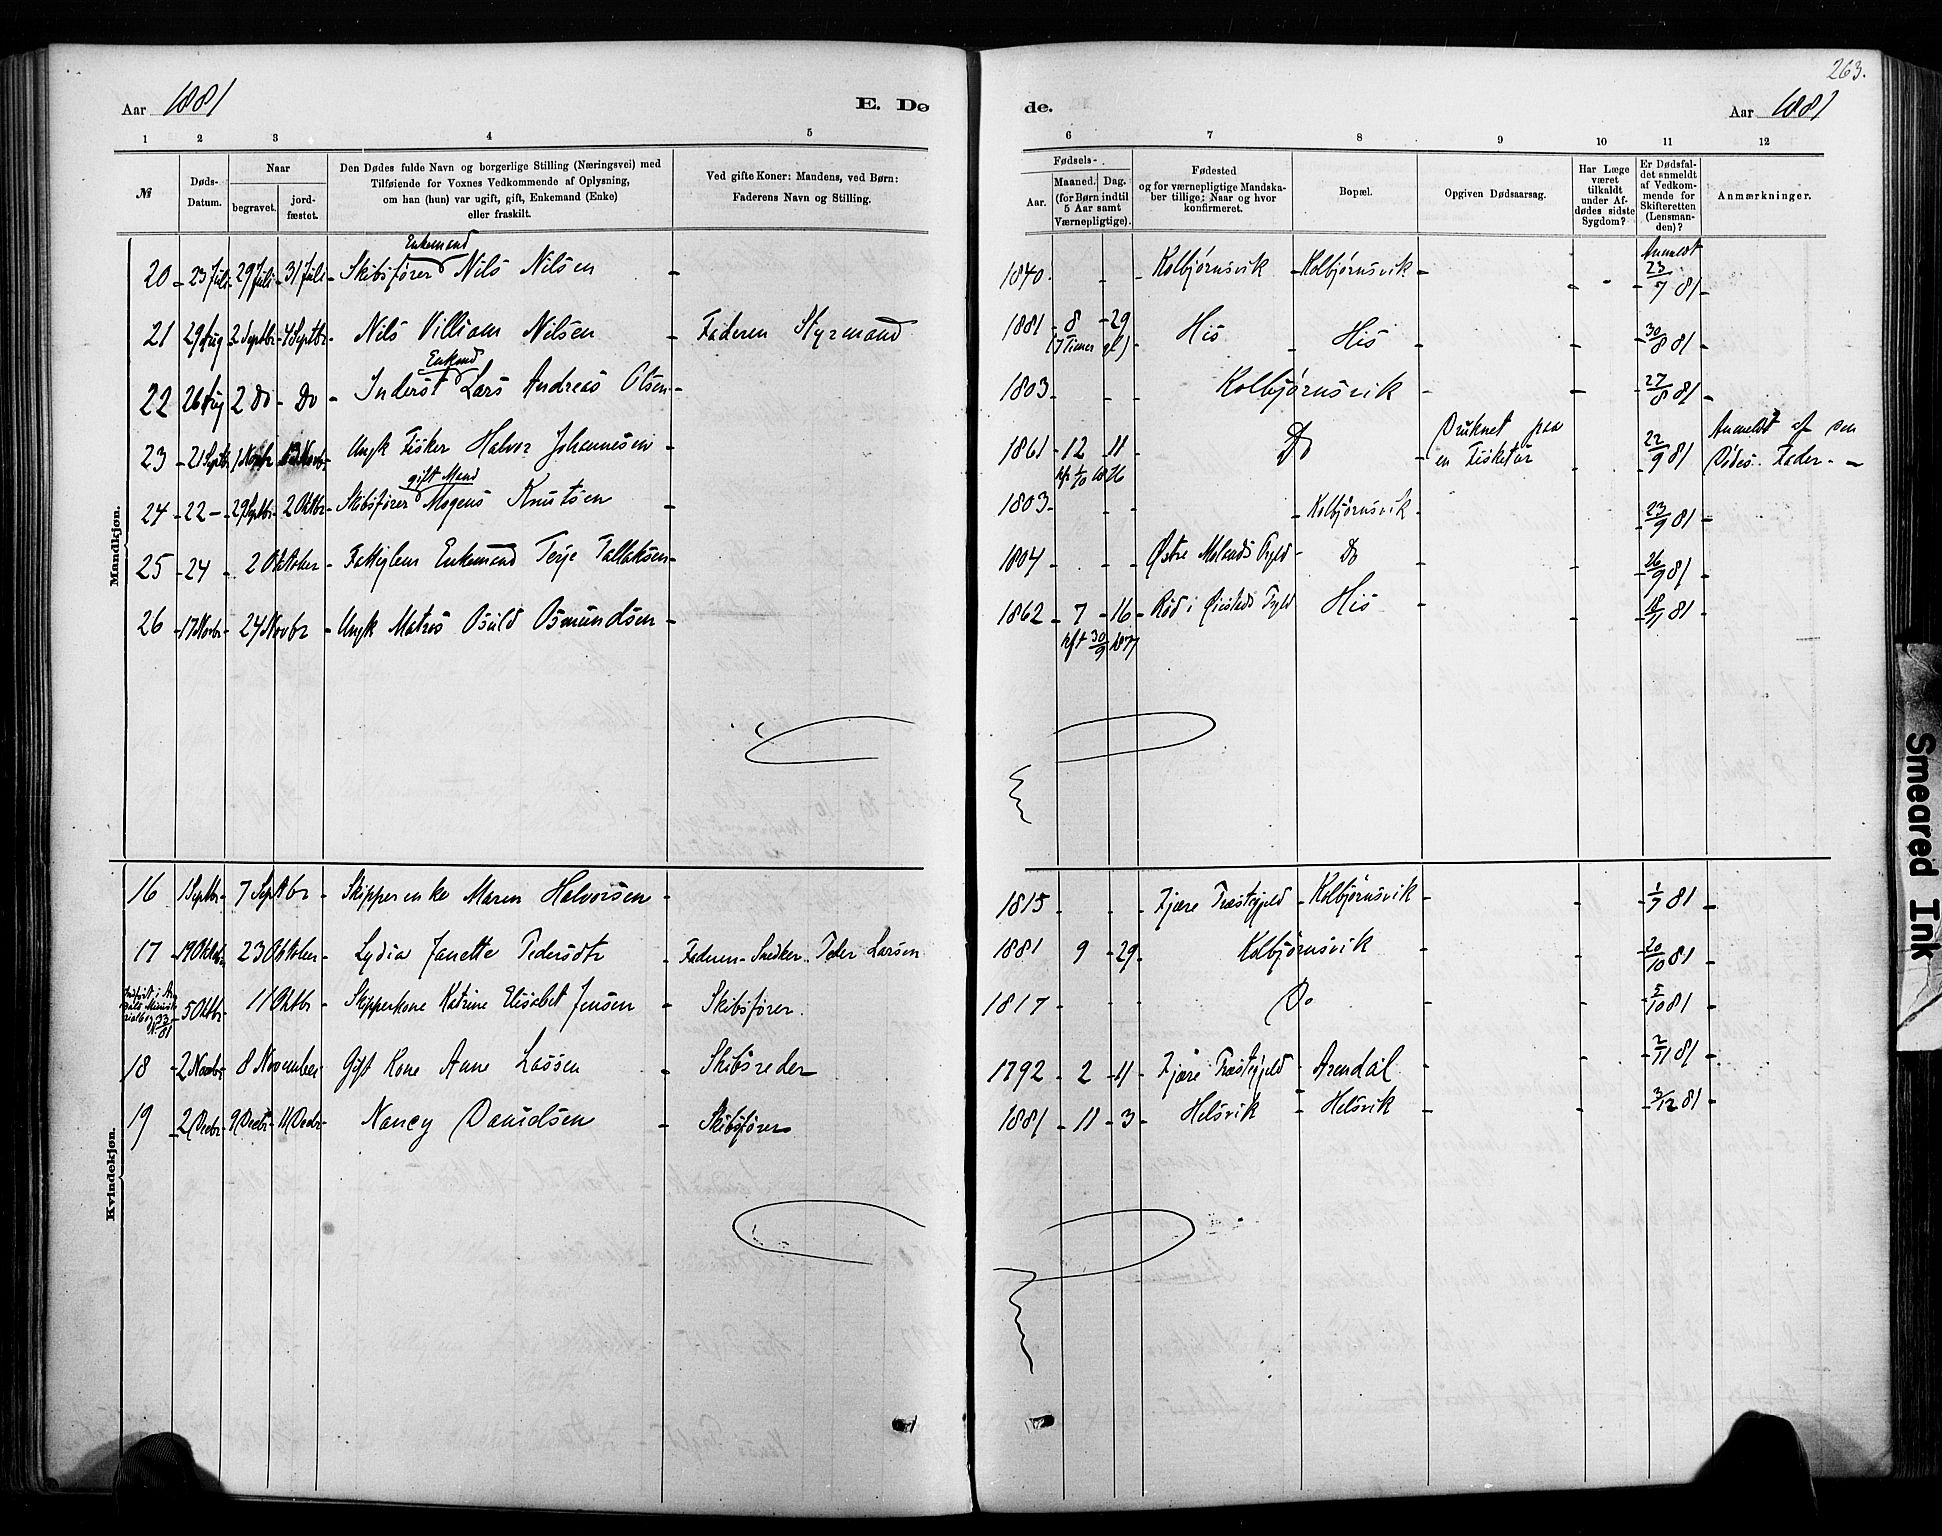 263.
Aar 1881 E. Dø de. Aar 1881
1 2 3 4 5 6 7 8 9 10 11 12
№
Døds-Datum.
Naar
begravet.
jord-fæstet.
Den Dødes fulde Navn og borgerlige Stilling (Næringsvei) med
Tilføiende for Voxnes Vedkommende af Oplysning,
om han (hun) var ugift, gift, Enkemand (Enke)
eller fraskilt.
Ved gifte Koner: Mandens, ved Børn:
Faderens Navn og Stilling.
Fødsels-
Aar.
Maaned. Dag.
(for Børn indtil
5 Aar samt
Værnepligtige).
Fødested
og for værnepligtige Mandska-
ber tillige: Naar og hvor
konfirmeret.
Bopæl.
Opgiven Dødsaarsag.
Har Læge
været
tilkaldt
under Af-
dødes sidste
Sygdom?
Er Dødsfal-
det anmeldt
af Vedkom-
mende for
Skifteretten
(Lensman-
den)?
Anmærkninger.
Mandkjøn.
Enkemand Anmeldt
20 - 23 Juli - 29 Juli - 31 Juli - Skibsfører Nils Nilsen - 1840 - Kolbjørnsvik - Kolbjørnsvik - 23/7 81 -
21 29 Aug 2 Septbr - 4 Septbr - Nils Villiam Nilsen - Faderen Styrmand 1881 - 8 - 29 His - His - 30/8 81 -
(7 Timer gl)
Enkemd
22 26 Aug 2 Do - Do - Inderst Lars Andreas Olsen - 1803 - Kolbjørnsvik - 27/8 81 -
23 - 21 Septbr 1 Novbr Ungk Fisker Halvor Johannesen - 1861 - 12 - 11 Do - Druknet paa en Fisketur - 22/9 81 Anmeldt af den Dødes Fader -
gift Mand
24 - 22 - 29 Septbr - 2 Oktbr - Skibsfører Mogens Knutsen - 1803 - Kolbjørnsvik - 23/9 81 -
25 - 24 - 2 Oktober - Fattiglem Enkemand Terje Tallaksen - 1804 - Østre Molands Prgld - Do - 26/9 81 -
26 - 17 Novbr - 24 Novbr - Ungk Matros Osuld Osmundsen - 1862 - 7 - 16 - Rød i Øiestads Prgld His - 18/11 81 -
kft 30/9 1877
Kvindekjøn.
16 1 Septbr - 7 Septbr - Skipperenke Maren Halvorsen - 1815 - Fjære Præstegjeld - Kolbjørnsvik - 1/9 81 -
17 - 19 Oktbr - 23 Oktober - Lydia Janette Pedersdtr - Faderen - Snedker Peder Larsen 1881 9 - 29 - Kolbjørnsvik - 20/10 81 -
5 Oktbr 11 Oktbr - Skipperkone Katrine Elisabet Jensen - Skibsfører. 1817 - Do - 5/10 81 -
18 - 2 Novbr - 8 November Gift Kone Anne Lassen - Skibsreder 1792 - 2 - 11 - Fjære Præstegjeld - Arendal - 2/11 81 -
19 - 2 Decbr - 9 Decbr - 11 Decbr - Nancy Danielsen - Skibsfører 1881 - 11 - 3 - Helsvik - Helsvik - 3/12 81 -
Smeared Ink